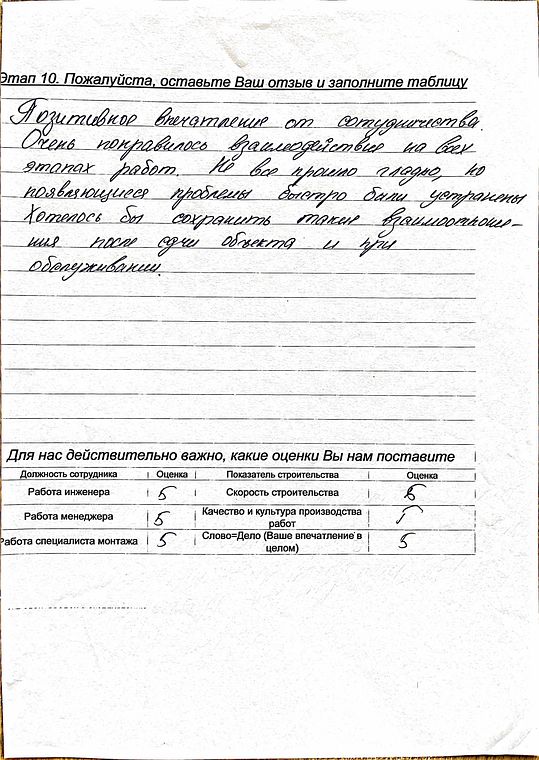 Этап 10. Пожалуйста, оставьте Ваш отзыв и заполните таблицу
Позитивное впечатление от сотрудничества.
Очень понравилось взаимодействие на всех
этапах работ. Не все прошло гладко, но
появляющиеся проблемы быстро были устранены
Хотелось бы сохранить такие взаимоотноше-
ния после сдачи объекта и при
обслуживании.
Для нас действительно важно, какие оценки Вы нам поставите
Должность сотрудника Оценка Показатель строительства Оценка
Работа инженера 5 Скорость строительства 5
Работа менеджера 5 Качество и культура производства работ 5
Работа специалиста монтажа 5 Слово=Дело (Ваше впечатление в целом) 5